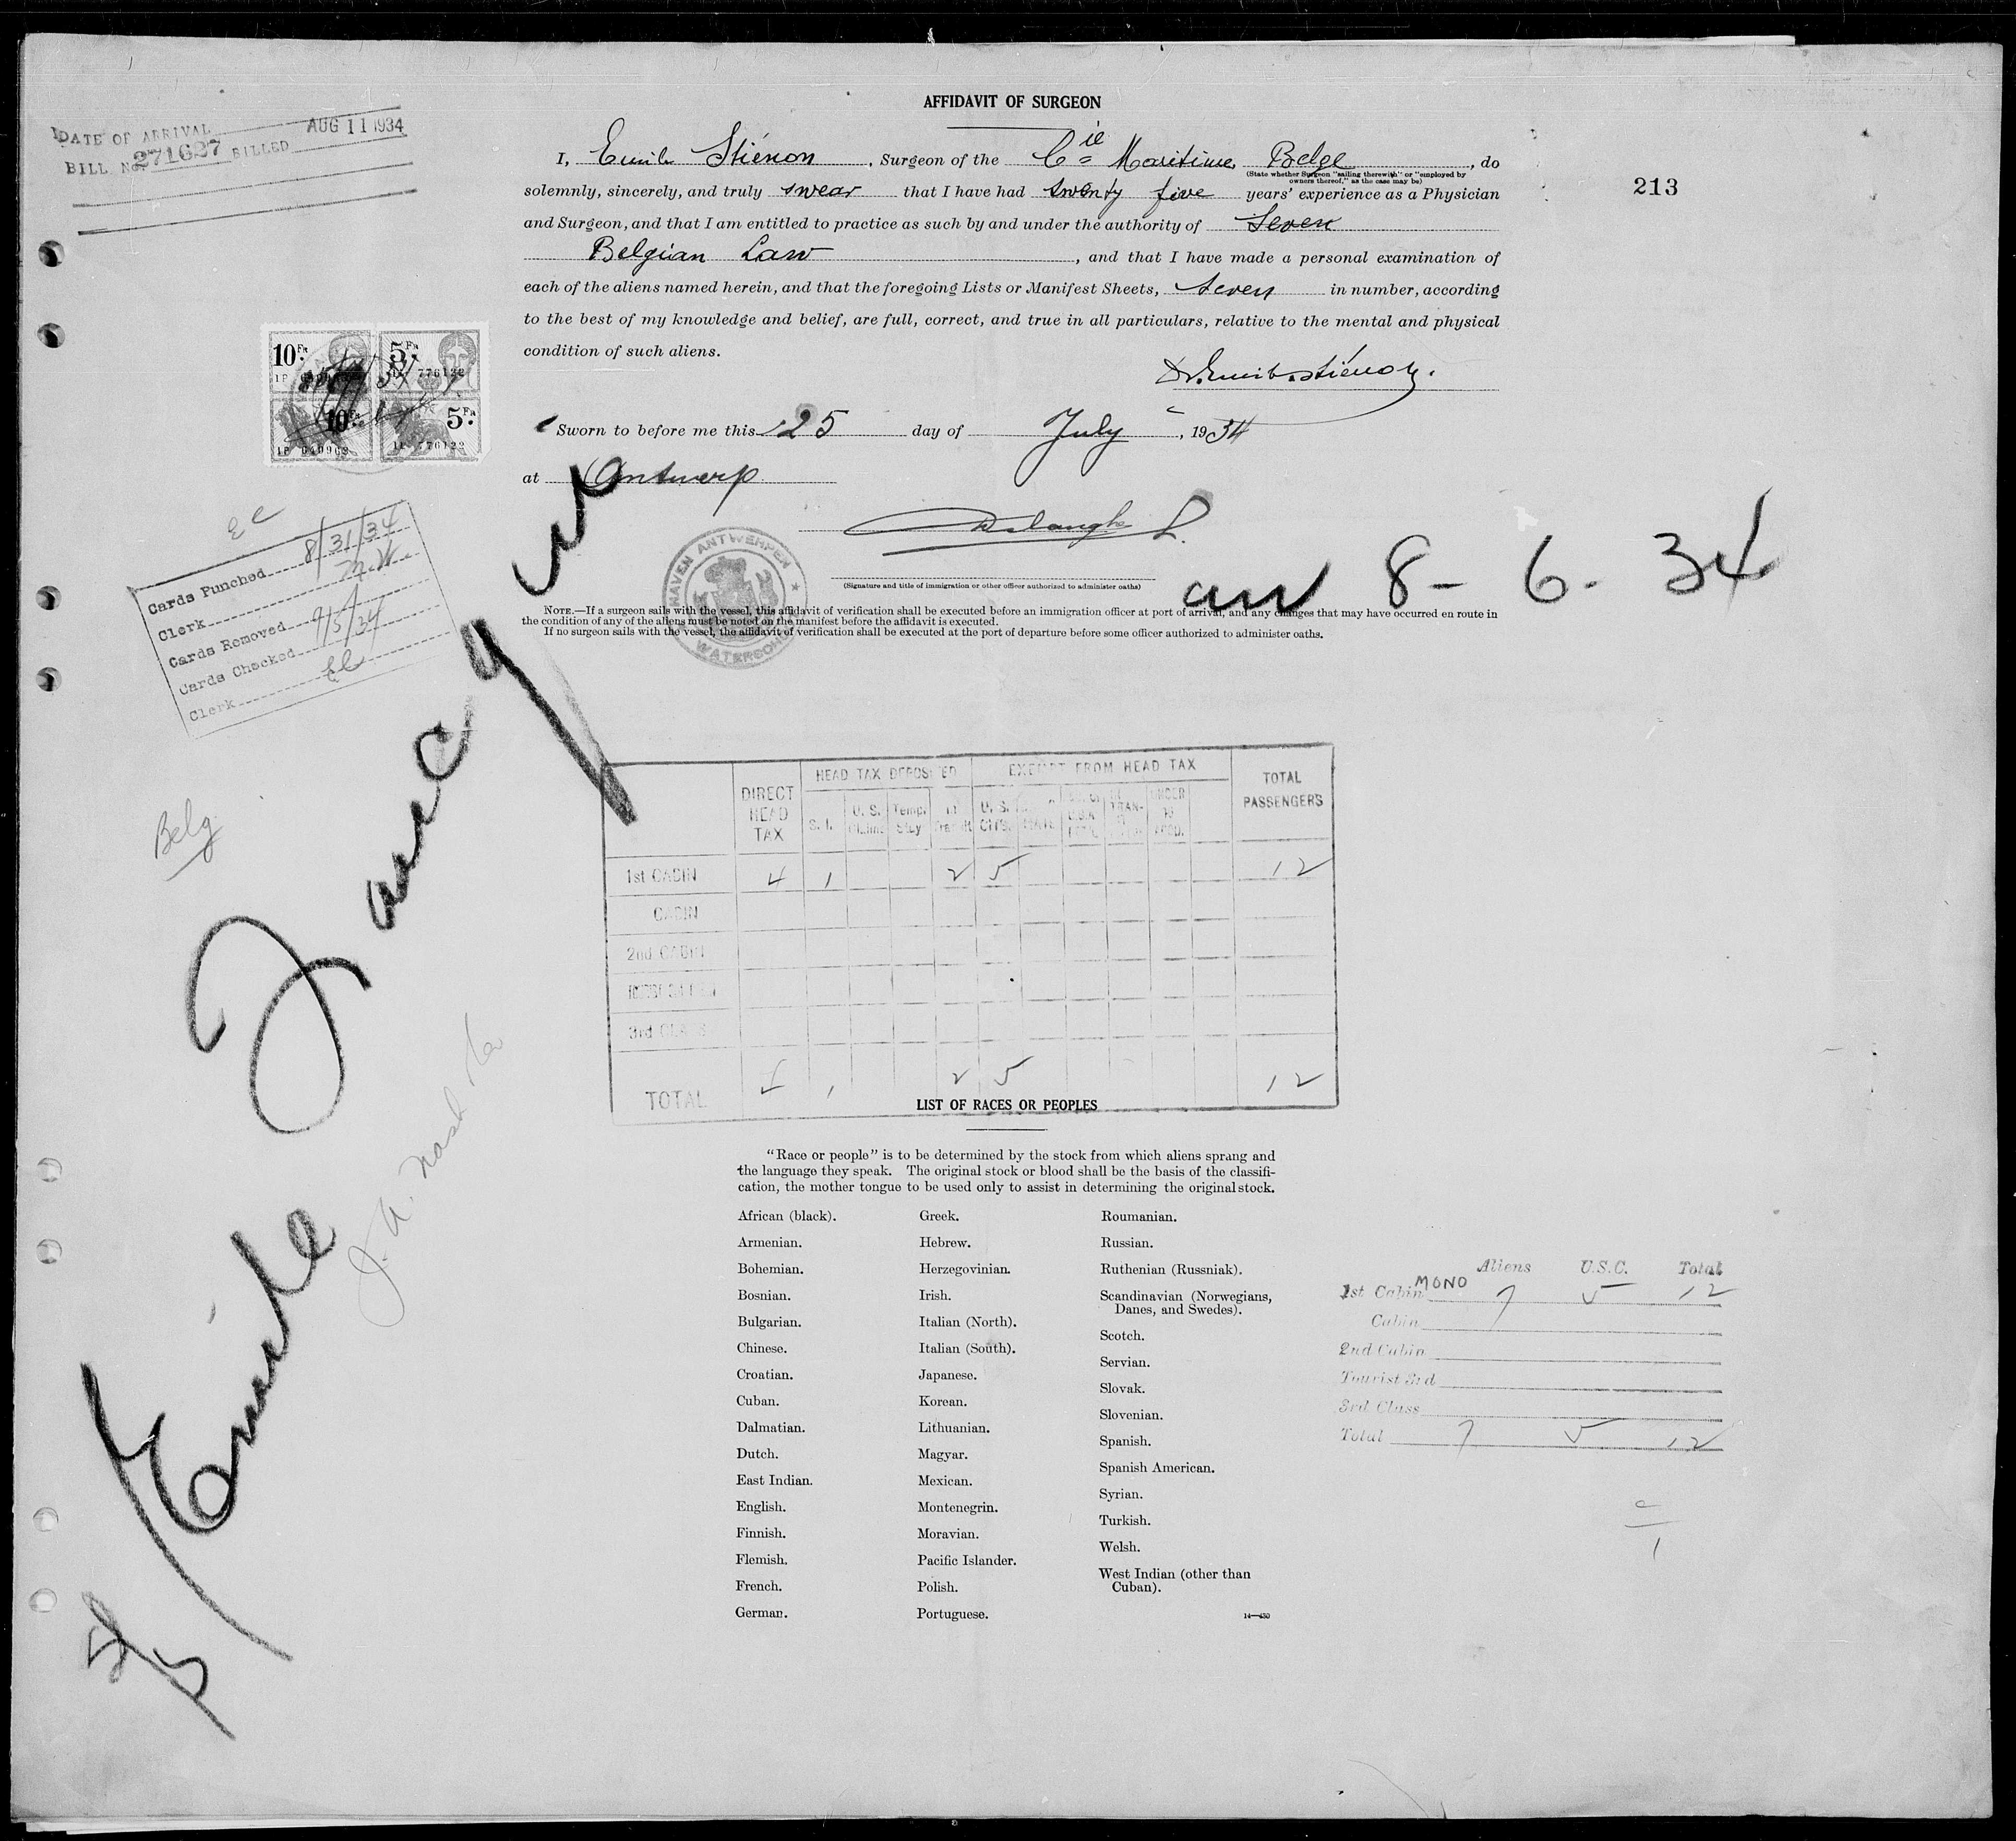 AFFIDAVIT OF SURGEON
DATE OF ARRIVAL AUG 11 1934
BILL No. 271627 BILLED
I, Emile Stiénon, Surgeon of the Cie Maritime Belge, do
(State whether Surgeon "sailing therewith" or "employed by
owners thereof," as the case may be)
213
solemnly, sincerely, and truly swear that I have had twenty five years' experience as a Physician
and Surgeon, and that I am entitled to practice as such by and under the authority of Seven
Belgian Law, and that I have made a personal examination of
each of the aliens named herein, and that the foregoing Lists or Manifest Sheets, seven in number, according
to the best of my knowledge and belief, are full, correct, and true in all particulars, relative to the mental and physical
condition of such aliens.
Dr. Emile Stiénon.
10 Fr. 5 Fr.
776132
10 Fr. 5 Fr.
1P 040963 1P 776133
Sworn to before me this 25 day of July, 1934
at Antwerp
(Signature and title of immigration or other officer authorized to administer oaths)
HAVEN ANTWERPEN
WATERSCHOUT
8-6-34
NOTE.—If a surgeon sails with the vessel, this affidavit of verification shall be executed before an immigration officer at port of arrival, and any changes that may have occurred en route in
the condition of any of the aliens must be noted on the manifest before the affidavit is executed.
If no surgeon sails with the vessel, the affidavit of verification shall be executed at the port of departure before some officer authorized to administer oaths.
Cards Punched 8/31/34
Clerk
Cards Removed
Cards Checked 9/5/34
Clerk EC
EC
Belg
Emile Francqui
HEAD TAX DEPOSITED EXEMPT FROM HEAD TAX
DIRECT HEAD TAX S. I. U. S. Claims Temp. Stay In Transit U. S. CITS. UNDER 16 ACCD. TOTAL PASSENGERS
1st CABIN 4 1 2 5 12
CABIN
2nd CABIN
3rd CLASS
TOTAL 4 1 2 5 12
LIST OF RACES OR PEOPLES
"Race or people" is to be determined by the stock from which aliens sprang and
the language they speak. The original stock or blood shall be the basis of the classifi-
cation, the mother tongue to be used only to assist in determining the original stock.
African (black).
Armenian.
Bohemian.
Bosnian.
Bulgarian.
Chinese.
Croatian.
Cuban.
Dalmatian.
Dutch.
East Indian.
English.
Finnish.
Flemish.
French.
German.
Greek.
Hebrew.
Herzegovinian.
Irish.
Italian (North).
Italian (South).
Japanese.
Korean.
Lithuanian.
Magyar.
Mexican.
Montenegrin.
Moravian.
Pacific Islander.
Polish.
Portuguese.
Roumanian.
Russian.
Ruthenian (Russniak).
Scandinavian (Norwegians,
Danes, and Swedes).
Scotch.
Servian.
Slovak.
Slovenian.
Spanish.
Spanish American.
Syrian.
Turkish.
Welsh.
West Indian (other than
Cuban).
14—430
Aliens U.S.C. Total
1st Cabin MONO 7 5 12
Cabin
2nd Cabin
Tourist 3rd
3rd Class
Total 7 5 12